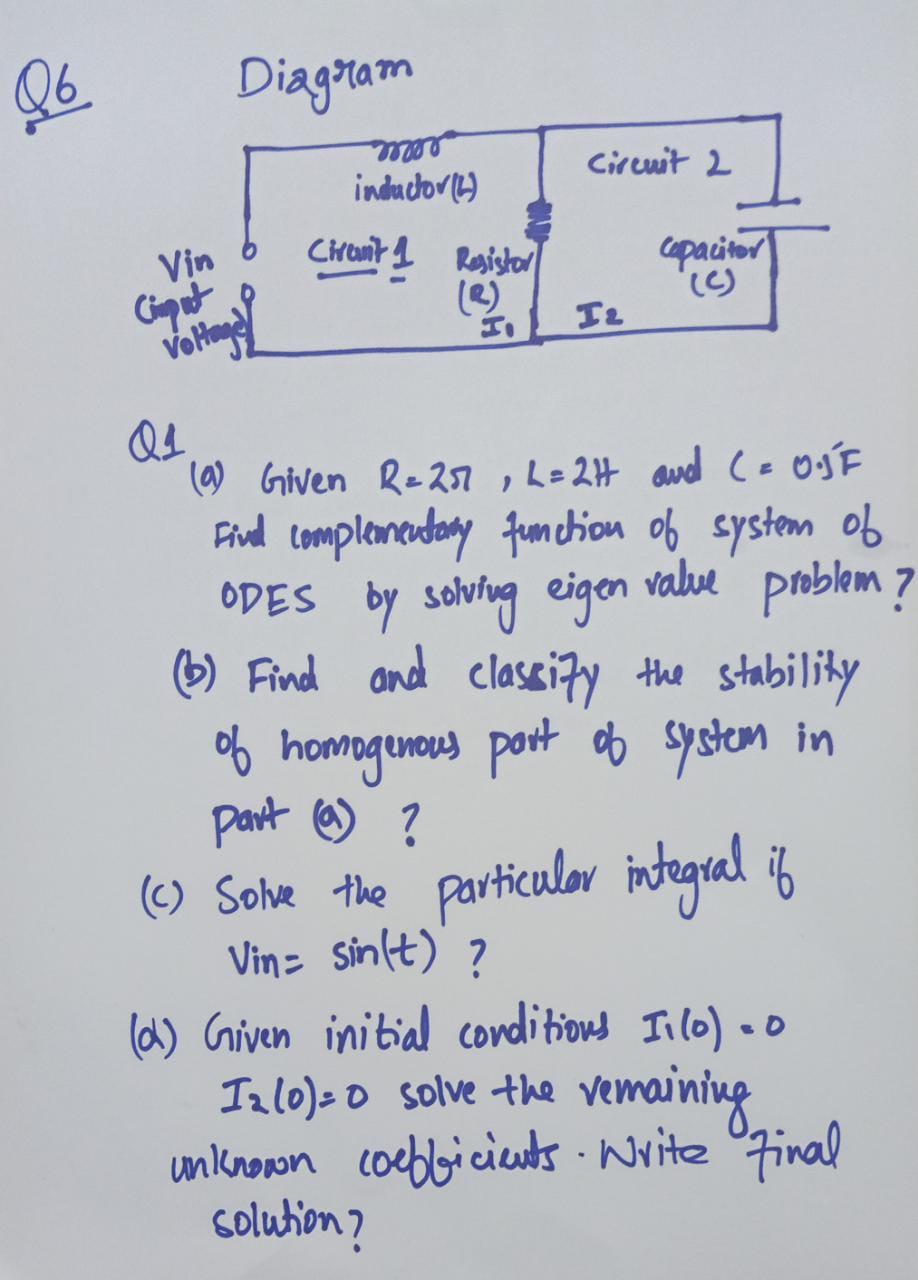 Q6
Diagram
inductor(L)
Circuit 2
Circuit 1
Vin
(input
voltage)
Resistor
(R)
I1
I2
Capacitor
(C)
Q1
(a) Given R=2Ω , L=2H and C = 0.5F
Find complementary function of system of
ODES by solving eigen value problem ?
(b) Find and classify the stability
of homogenous part of system in
part (a) ?
(c) Solve the particular integral if
Vin= sin(t) ?
(d) Given initial conditions I1(0) = 0
I2(0)=0 solve the remaining
unknown coefficients. Write final
solution?